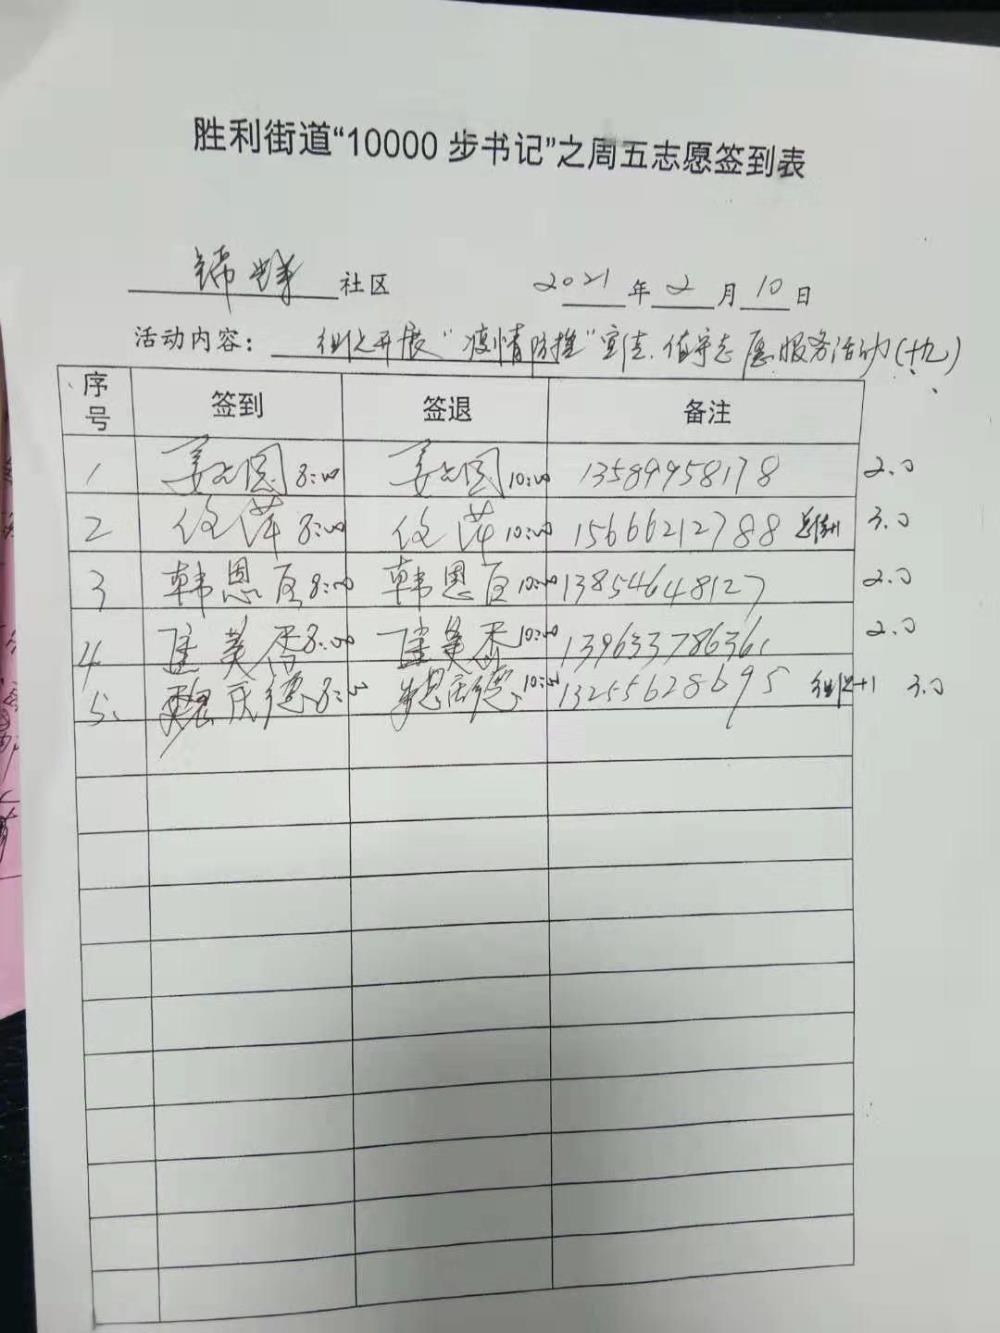 胜利街道“10000 步书记”之周五志愿签到表
锦华社区 2021年2月10日
活动内容： 组织开展“疫情防控”宣传、值守志愿服务活动(十九)
序号 签到 签退 备注
1 姜 8:00 姜 10:00 13589958178 2.0
2 萍 8:00 萍 10:00 15666212788 3.0
3 韩恩 8:00 韩恩 10:00 13854648127 2.0
4 8:00 10:00 2.0
5. 魏庆德 8:00 魏庆德 10:00 13255628695 组织+1 3.0